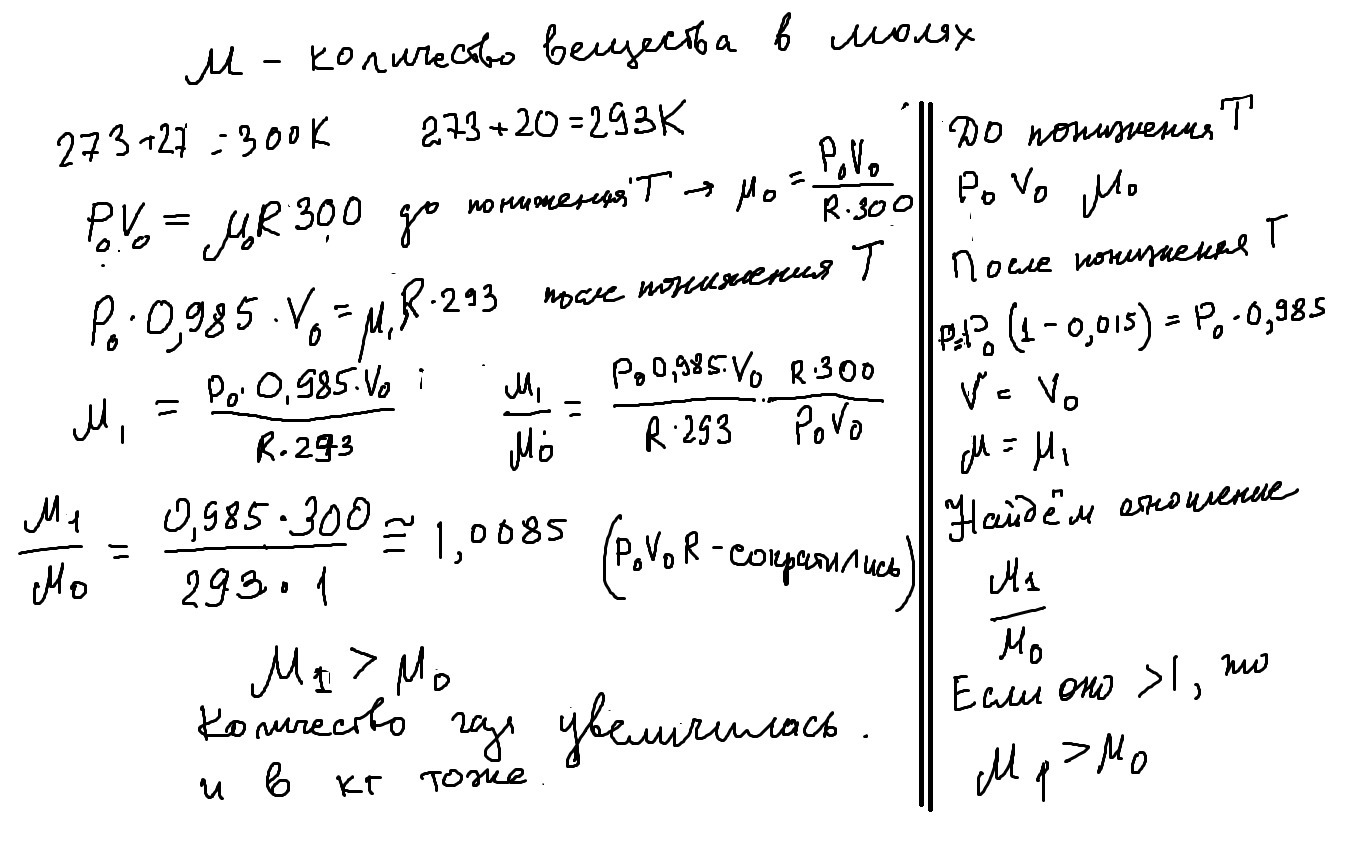 М – количество вещества в молях
273+27 = 300K 273+20=293K
P₀V₀ = μ₀R300 до понижения T → μ₀ = P₀V₀ / R·300
P₀·0,985·V₀ = μ₁R·293 после понижения T
М₁ = P₀·0,985·V₀ / R·293 ; М₁ / М₀ = P₀0,985·V₀ / R·293 · R·300 / P₀V₀
М₁ / М₀ = 0,985·300 / 293·1 ≅ 1,0085 (P₀V₀R – сократились)
М₁ > М₀
Количество газа увеличилась.
и в кг тоже.
До понижения T
P₀ V₀ М₀
После понижения T
P=P₀(1-0,015) = P₀·0,985
V = V₀
М = М₁
Найдём отношение
М₁ / М₀
Если оно >1, то
М₁ > М₀